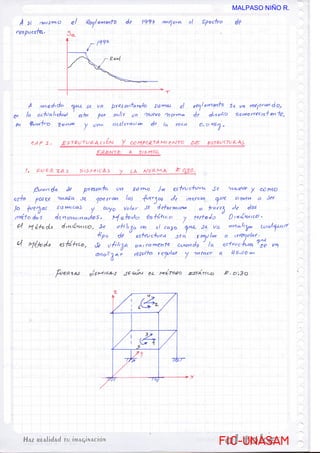 MALPASO NIÑO R.
A si mismo el Reglamento de 1997 mejora el Spectro de
respuesta.
Sa
1997
Real
T
A medida que se va presentando sismos el reglamento se va mejorando,
en la actualidad esto por salir un nuevo norma de diseño sismorresistente,
en zona y una aceleración de la roca
CAP I. ESTRUCTURACIÓN Y COMPORTAMIENTO DE ESTRUCTURAS
FRENTE A SISMOS
1. FUERZAS DINAMICAS Y LA NORMA E.030.
Cuando se presenta un sismo la estructura se mueve y como
esta posee masa se generan las fuerzas de inercia, que viene a ser
la fuerzas sismicas y cuyo valor se determina a través de dos
métodos denominados: Método estático y método Dinámico.
el Método dinámico, se utiliza en el caso que se va analizar cualquier
tipo de estructura sea regular o irregular.
el Método estático, se utiliza unicamente cuando la estructura que se va
analizar resulta regular y menor a
FUERZAS DINAMICAS SEGÚN EL METODO ESTÁTICO E.030
z
4
6
2
3
5
1
y
x
Haz realidad tu imaginación
FIC-UNASAM